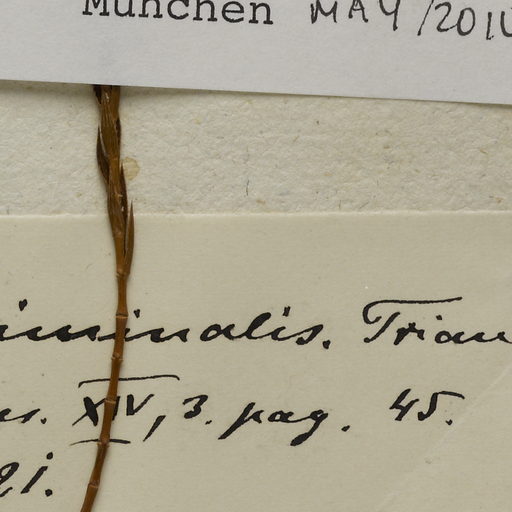 München MAY/2010
iminalis. Trian
XIV, 3. pag. 45.